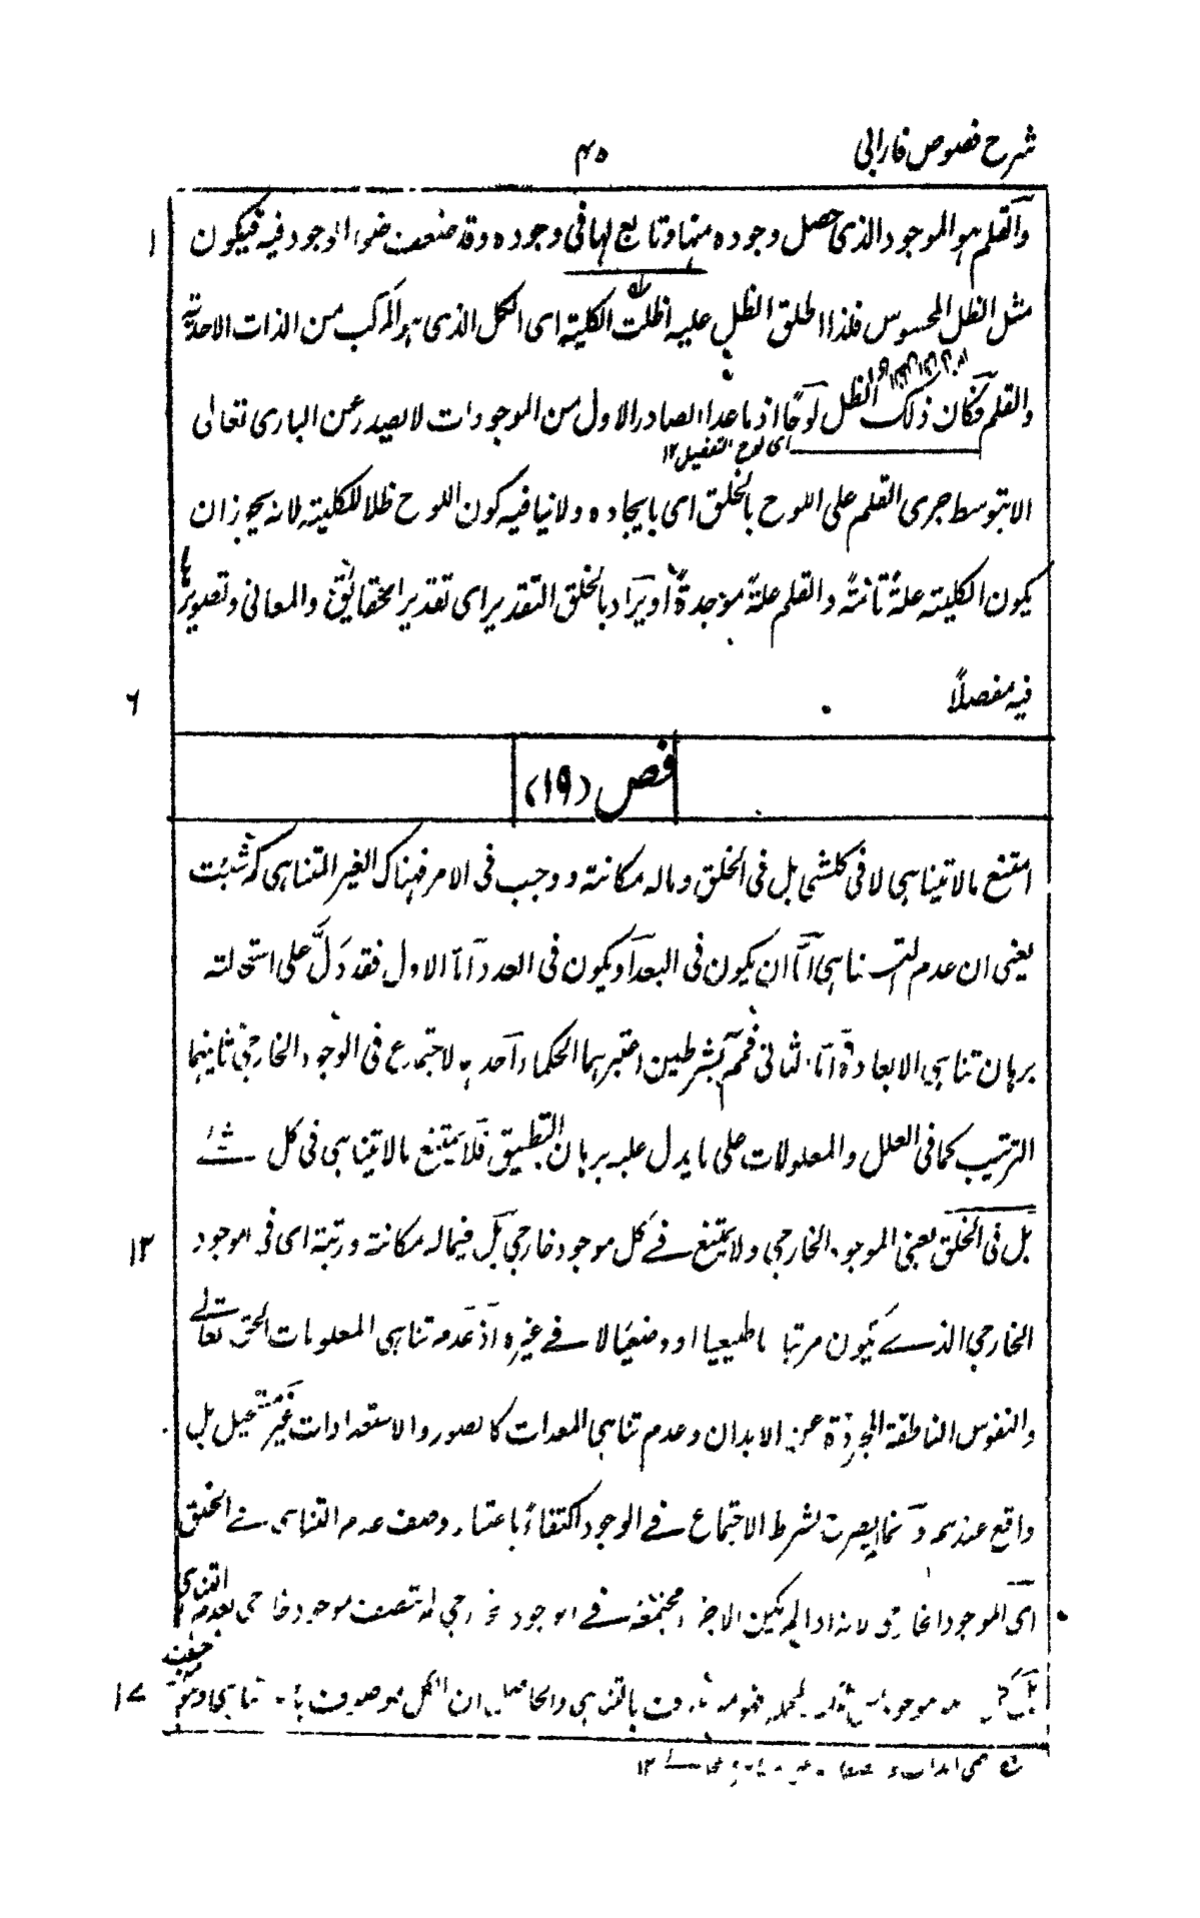 شرح فصوص فارابی
۴۵
والقلم هو الموجود الذی حصل وجوده منها وتابع لها فی وجوده وقد ضعف ضوء الوجود فیه فیکون
۱
مثل الظل المحسوس فلذا اطلق الظل علیه اظلت الکلیة ای الکل الذی هو المرکب من الذات الاحدیة
والقلم فکان ذلک الظل لوحًا اذ ما عدا الصادر الاول من الموجودات لا یصدر عن الباری تعالی
ای لوح التفصیل ۱۲
الا بتوسط جری القلم علی اللوح بالخلق ای بایجاده ولا ینافیه کون اللوح ظلا للکلیة لانه یجوز ان
یکون الکلیة علة والقلم علة موجدة او یراد بالخلق التقدیر ای تقدیر الحقائق والمعانی وتصویرها
فیه مفصلاً
۶
فص (۱۹)
امتنع مالا یتناهی لا فی کلشی بل فی الخلق وماله مکانة ووجب فی الامر فهناک الغیر المتناهی کم شئت
یعنی ان عدم التناهی اما ان یکون فی البعد او یکون فی العدد اما الاول فقد دلّ علی استحالته
برهان تناهی الابعاد واما الثانی بشرطین اعتبرهما الحکماء احدهما الاجتماع فی الوجود الخارجی ثانیهما
الترتیب کما فی العلل والمعلولات علی ما یدل علیه برهان التطبیق فلا یمتنع مالا یتناهی فی کل شئ
بل فی الخلق یعنی الموجود الخارجی ولا یمتنع فی کل موجود خارجی بل فیما له مکانة ورتبة ای فی موجود
۱۲
الخارجی الذی یکون مرتبا طبیعیا او وضعیا لا فی غیره اذ عدم تناهی المعلومات الحق تعالی
والنفوس الناطقة المجردة عن الابدان وعدم تناهی المعدات کالصور والاستعدادات غیر مستحیل بل
واقع عندهم وانما لم یصرح بشرط الاجتماع فی الوجود اکتفاءً باعتبار وصف عدم التناهی فی الخلق
ای الموجود الخارجی لانه اذا لم یکن الاجزاء مجتمعة فی الوجود الخارجی لم یتصف موجود خارجی بعدم التناهی
بالتناهی والحاصل ان الکل موصوف
۱۷